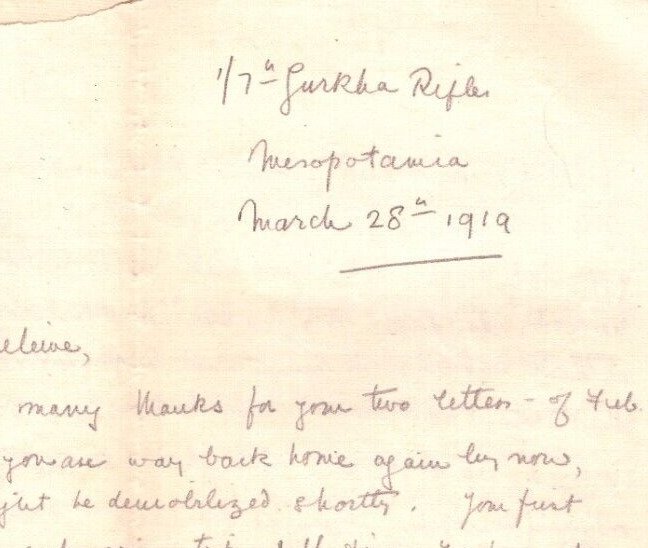 1/7th Gurkha Rifles
Mesopotamia
March 28th 1919
many thanks for your two letters - of Feb
you are way back home again by now,
be demobilized shortly. Your first